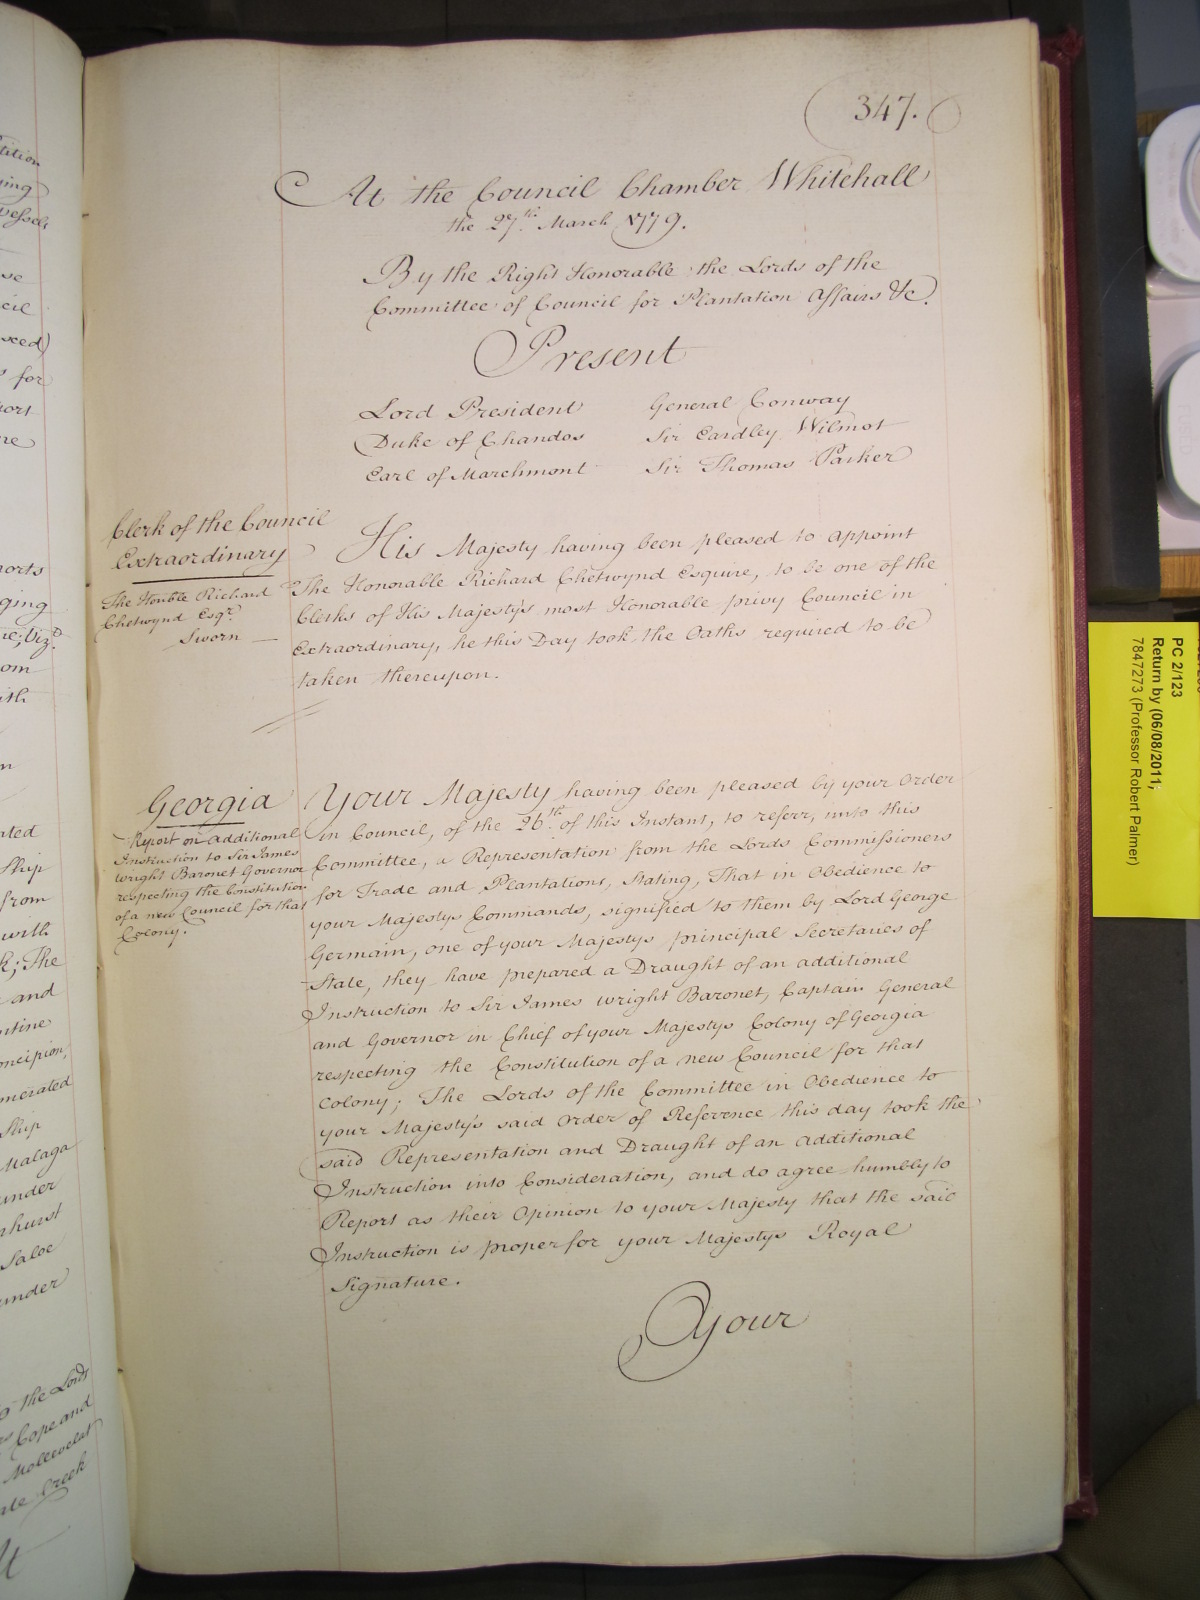 347.
At the Council Chamber Whitehall
the 27th. March 1779.
By the Right Honorable the Lords of the
Committee of Council for Plantation Affairs &c.
Present
Lord President General Conway
Duke of Chandos Sir Eardley Wilmot
Earl of Marchmont Sir Thomas Parker
Clerk of the Council
Extraordinary
The Honble Richard
Chetwynd Esqr.
Sworn
His Majesty having been pleased to appoint
The Honorable Richard Chetwynd Esquire, to be one of the
Clerks of His Majesty's most Honorable privy Council in
Extraordinary, he this Day took the Oaths required to be
taken thereupon.
Georgia
Report on additional
Instruction to Sir James
Wright Baronet Governor
respecting the Constitution
of a new Council for that
Colony.
Your Majesty having been pleased by your Order
in Council, of the 26th. of this Instant, to referr, unto this
Committee, a Representation from the Lords Commissioners
for Trade and Plantations, Stating, That in Obedience to
your Majestys Commands, signified to them by Lord George
Germain, one of your Majestys principal Secretaries of
State, they have prepared a Draught of an additional
Instruction to Sir James Wright Baronet, Captain General
and Governor in Chief of your Majestys Colony of Georgia
respecting the Constitution of a new Council for that
Colony; The Lords of the Committee in Obedience to
your Majesty's said Order of Reference this day took the
said Representation and Draught of an additional
Instruction into Consideration, and do agree humbly to
Report as their Opinion to your Majesty that the said
Instruction is proper for your Majestys Royal
Signature.
Your
PC 2/123
Return by (06/08/2011;
7847273 (Professor Robert Palmer)